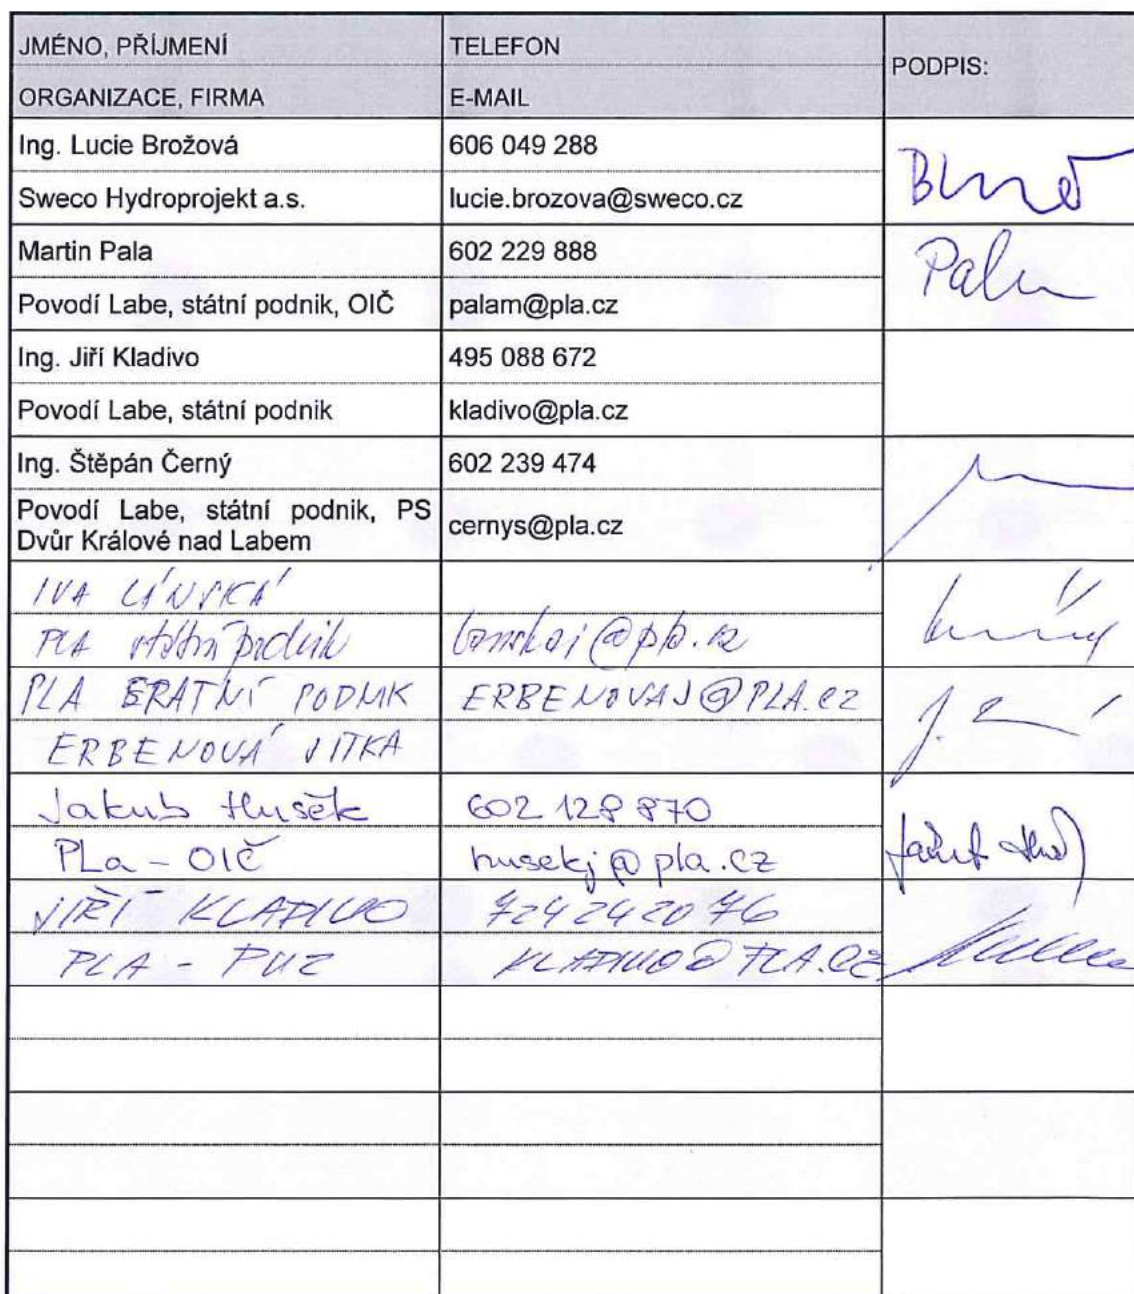 JMÉNO, PŘÍJMENÍ
ORGANIZACE, FIRMA
TELEFON
E-MAIL
PODPIS:
Ing. Lucie Brožová
606 049 288
Sweco Hydroprojekt a.s.
lucie.brozova@sweco.cz
Martin Pala
602 229 888
Pala
Povodí Labe, státní podnik, OIČ
palam@pla.cz
Ing. Jiří Kladivo
495 088 672
Povodí Labe, státní podnik
kladivo@pla.cz
Ing. Štěpán Černý
602 239 474
Povodí Labe, státní podnik, PS
Dvůr Králové nad Labem
cernys@pla.cz
IVA LÁNSKÁ
PLA státní podnik
lanskai@pla.cz
PLA STATNÍ PODNIK
ERBENOVAJ@PLA.CZ
ERBENOVÁ JITKA
Jakub Husek
602 128 870
PLa - OIČ
husekj@pla.cz
JIŘÍ KLADIVO
724242076
PLA - PUZ
KLADIVO@PLA.CZ